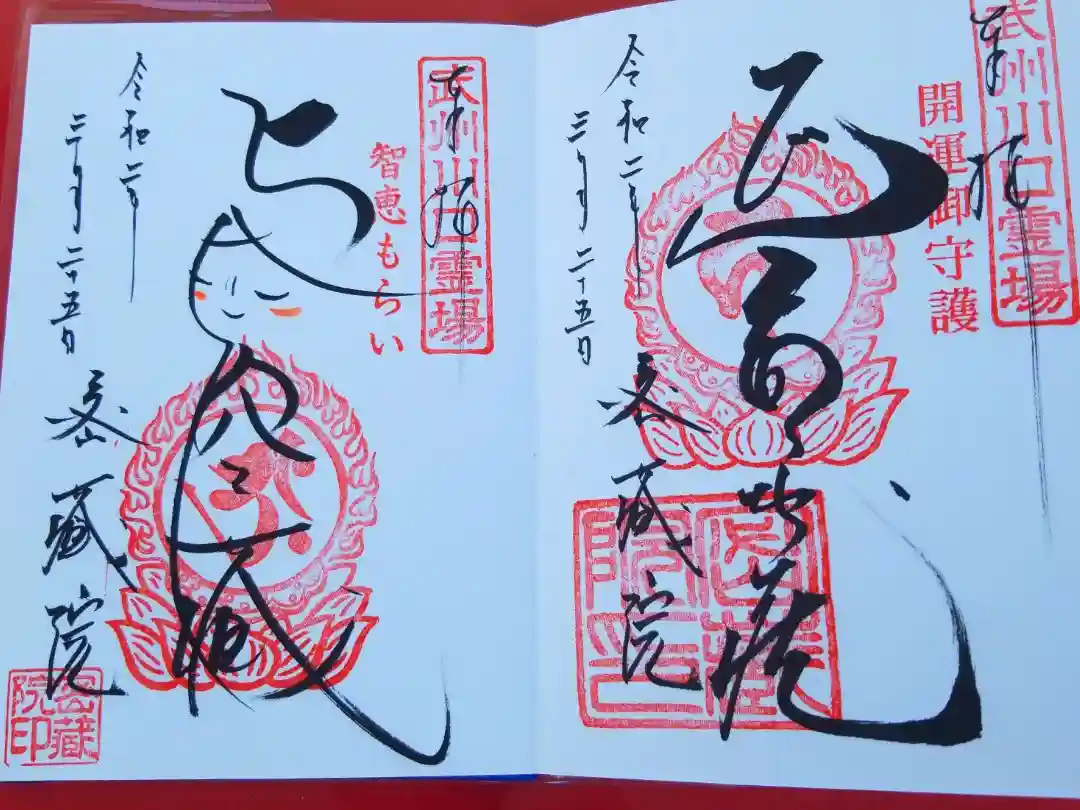 武州川口霊場
奉拝
開運御守護
地蔵
令和二年
三月二十五日
密蔵院
密蔵院印
武州川口霊場
奉拝
智恵もらい
虚空蔵
令和二年
三月二十五日
密蔵院
密蔵院印